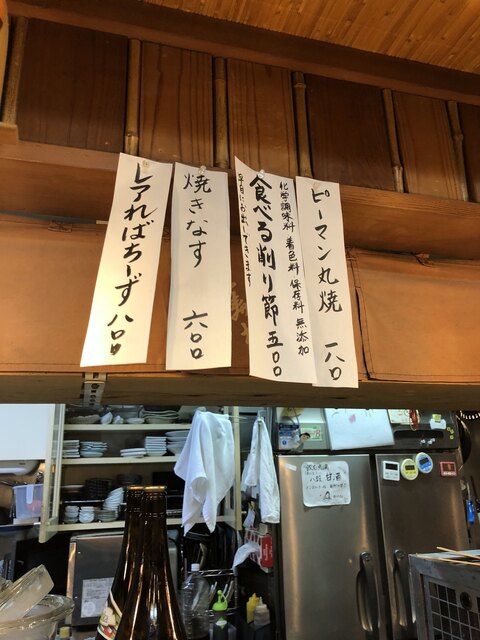 ピーマン丸焼 一八〇
化学調味料 着色料 保存料 無添加
食べる削り節 五〇〇
早急にお出しできます
焼きなす 六〇〇
レアればちーず 八〇〇
甘酒